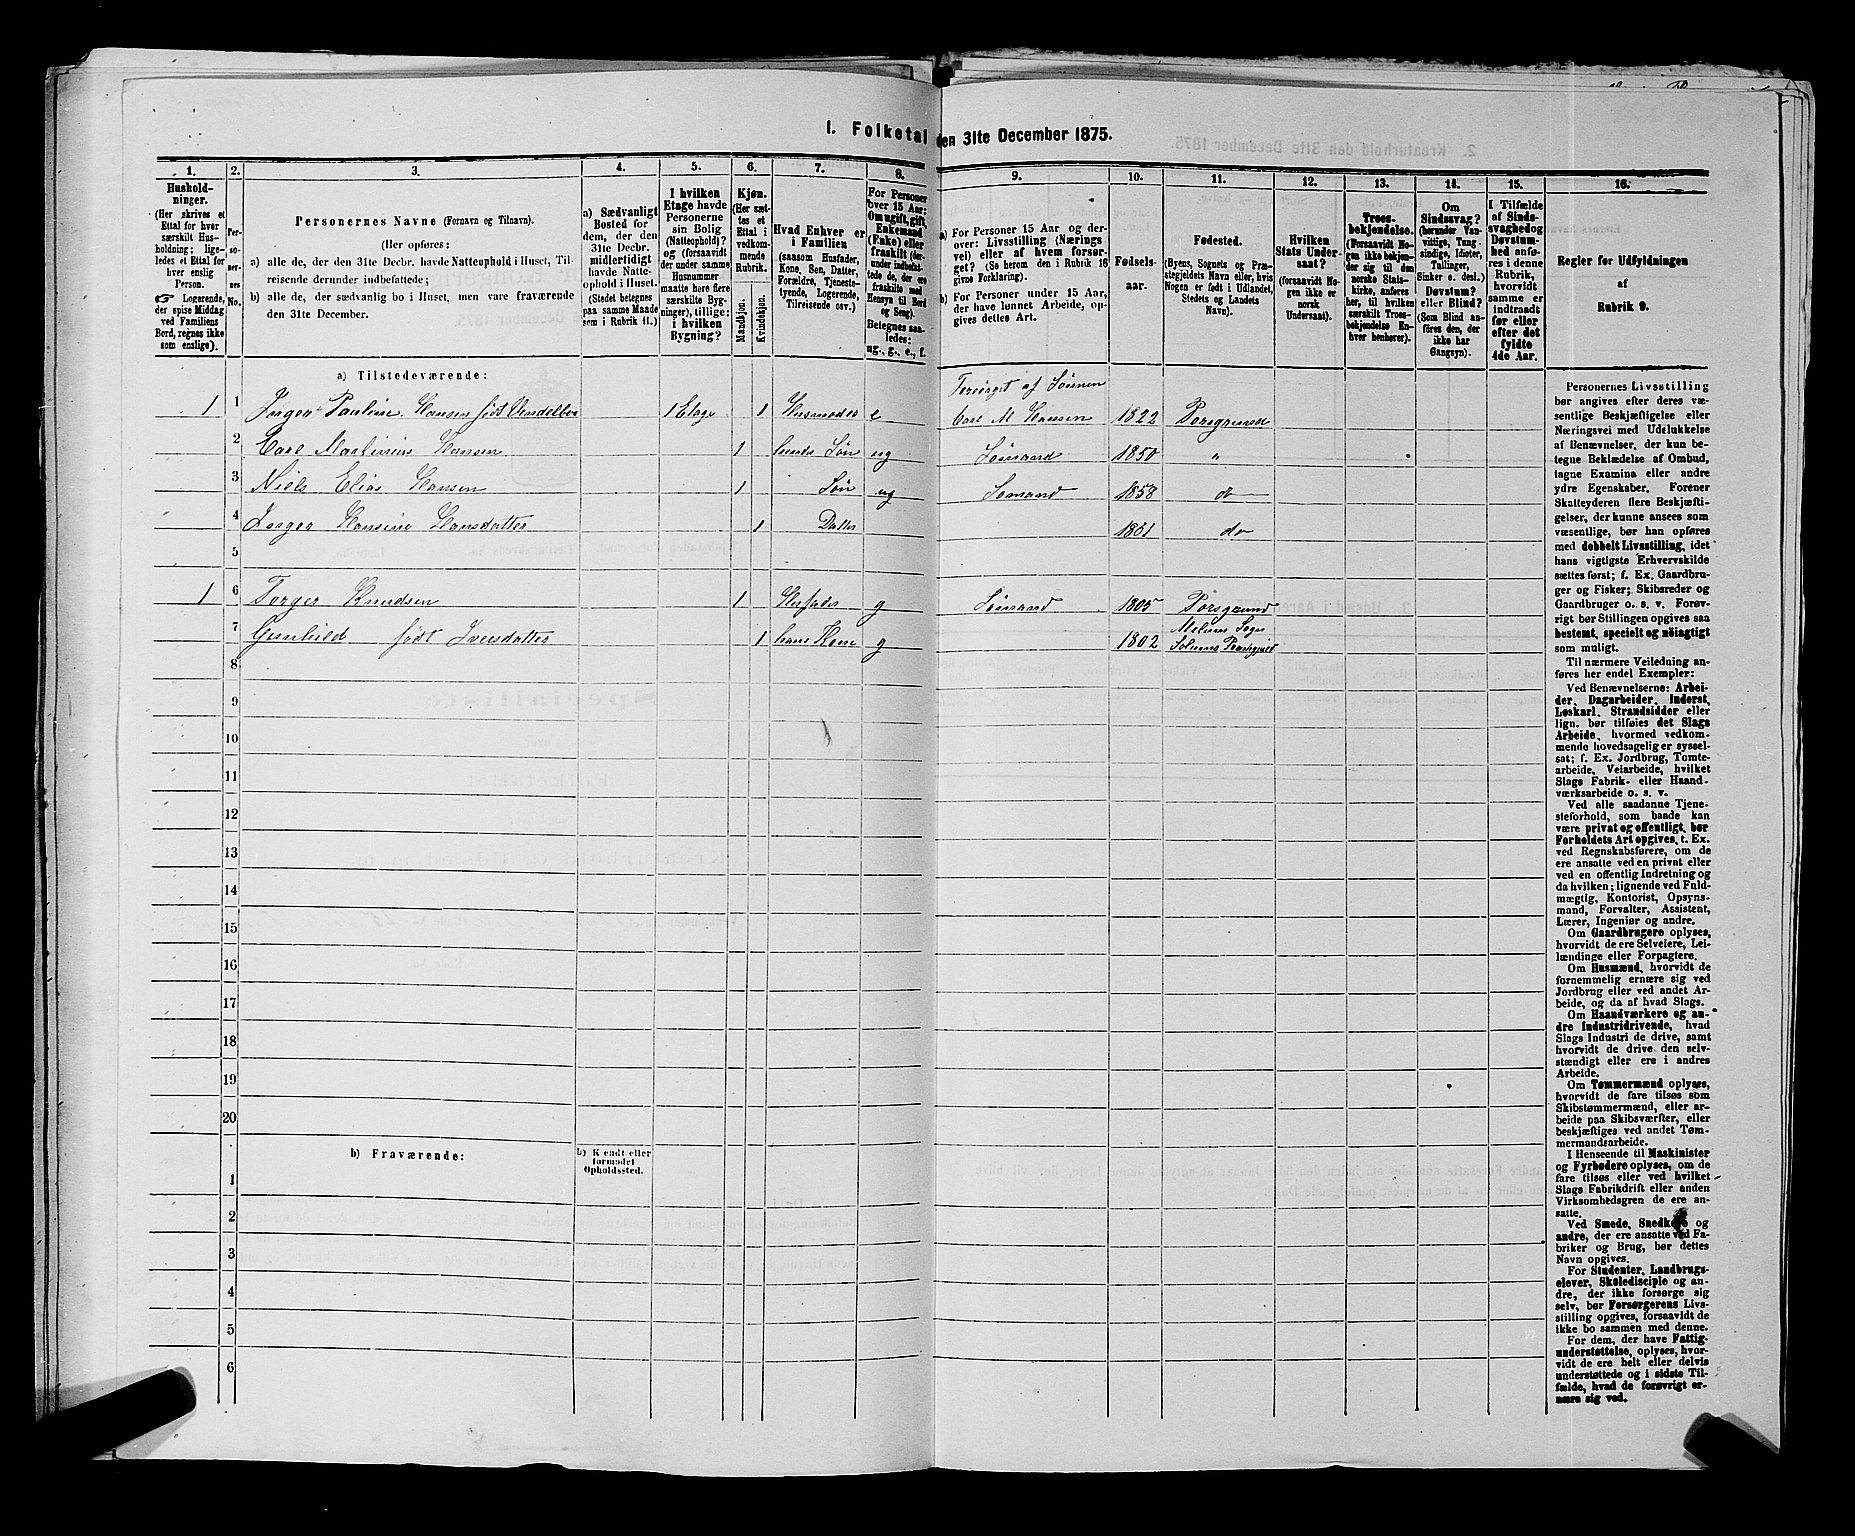 1. Folketal den 31te December 1875.
1. 2. 3. 4. 5. 6. 7. 8. 9. 10. 11. 12. 13. 14. 15. 16.
Hushold-
ninger.
(Her skrives et
Ettal for hver
særskilt Hus-
holdning; lige-
ledes et Ettal for
hver enslig
Person.
☞ Logerende,
der spise Middag
ved Familiens
Bord, regnes ikke
som enslige).
Per-
so-
ner-
nes
No.
Personernes Navne (Fornavn og Tilnavn).
(Her opføres:
a) alle de, der den 31te Decbr. havde Natteophold i Huset, Til-
reisende derunder indbefattede;
b) alle de, der sædvanlig bo i Huset, men vare fraværende
den 31te December.
a) Sædvanligt
Bosted for
dem, der den
31te Decbr.
midlertidigt
havde Natte-
ophold i Huset.
(Stedet betegnes
paa samme Maade
som i Rubrik 11.)
I hvilken
Etage havde
Personerne
sin Bolig
(Natteophold)?
og (forsaavidt
der under samme
Husnummer
maatte høre flere
særskilte Byg-
ninger), tillige:
i hvilken
Bygning?
Kjøn.
(Her sæt-
tes et
Ettal i
vedkom-
mende
Rubrik.
Mandkjøn.
Kvindekjøn.
Hvad Enhver er
i Familien
(saasom Husfader,
Kone, Søn, Datter,
Forældre, Tjeneste-
tyende, Logerende,
Tilreisende osv.)
For Personer
over 15 Aar:
Om ugift, gift,
Enkemand
(Enke) eller
fraskilt (der-
under indbefat-
tede de, der ere
fraskilte med
Hensyn til Bord
og Seng).
Betegnes saa-
ledes:
ug., g., e., f.
a) For Personer 15 Aar og der-
over: Livsstilling (Nærings
vei) eller af hvem forsør-
get? (Se herom den i Rubrik 16
givne Forklaring).
b) For Personer under 15 Aar,
der have lønnet Arbeide, op-
gives dettes Art.
Fødsels-
aar.
Fødested.
(Byens, Sognets og Præ-
stegjeldets Navn eller, hvis
Nogen er født i Udlandet,
Stedets og Landets
Navn).
Hvilken
Stats Under-
saat?
(forsaavidt No-
gen ikke er
norsk
Undersaat).
Troes-
bekjendelse.
(Forsaavidt No-
gen ikke bekjen-
der sig til den
norske Stats-
kirke, anføres
her, til hvilken
særskilt Troes-
bekjendelse En-
hver henhører).
Om
Sindssvag?
(herunder Van-
vittige, Tung-
sindige, Idioter,
Tullinger,
Sinker o. desl.)
Døvstum?
eller Blind?
(Som Blind an-
føres den, der
ikke har
Gangsyn).
I Tilfælde
af Sinds-
svaghed og
Døvstum-
hed anfø-
res i denne
Rubrik,
hvorvidt
samme er
indtraadt
før eller
efter det
fyldte
4de Aar.
Regler for Udfyldningen
af
Rubrik 9.
a) Tilstedeværende:
Forsørget af Sønnen
1 1 Inger Pauline Hansen født Vendelboe 1 Etage 1 Husmoder e Carl M Hansen 1822 Porsgrund
2 Carl Martinius Hansen 1 hendes Søn ug Sømand 1850 "
3 Niels Elias Hansen 1 Søn ug Sømand 1858 do
4 Inger Hansine Hansdatter 1 Datter 1861 do
5
1 6 Torger Knudsen 1 Husfader g Sømand 1805 Porsgrund
7 Gunhild født Iversdatter 1 hans Kone g 1802 Melums Sogn
Solums
8
9
10
11
12
13
14
15
16
17
18
19
20
b) Fraværende:
b) Kjendt eller
formodet
Opholdssted.
1
2
3
4
5
6
Personernes Livsstilling
bør angives efter deres væ-
sentlige Beskjæftigelse eller
Næringsvei med Udelukkelse
af Benævnelser, der kun be-
tegne Beklædelse af Ombud,
tagne Examina eller andre
ydre Egenskaber. Forener
Skatteyderen flere Beskjæfti-
gelser, der kunne ansees som
væsentlige, bør han opføres
med dobbelt Livsstilling, idet
hans vigtigste Erhvervskilde
sættes først; f. Ex. Gaardbru-
ger og Fisker; Skibsreder og
Gaardbruger o. s. v. Forøv-
rigt bør Stillingen opgives saa
bestemt, specielt og nöiagtigt
som muligt.
Til nærmere Veiledning an-
føres her endel Exempler:
Ved Benævnelserne: Arbei-
der, Dagarbeider, Inderst,
Løskarl, Strandsidder eller
lign. bør tilføies det Slags
Arbeide, hvormed vedkom-
mende hovedsagelig er syssel-
sat; f. Ex. Jordbrug, Tomte-
arbeide, Veiarbeide, hvilket
Slags Fabrik- eller Haand-
værksarbeide o. s. v.
Ved alle saadanne Tjene-
steforhold, som baade kan
være privat og offentligt, bør
Forholdets Art opgives, t. Ex.
ved Regnskabsførere, om de
ere ansatte ved en privat eller
ved en offentlig Indretning og
da hvilken; lignende ved Fuld-
mægtig, Kontorist, Opsyns-
mand, Forvalter, Assistent,
Lærer, Ingeniør og andre.
Om Gaardbrugere oplyses,
hvorvidt de ere Selveiere, Lei-
lændinge eller Forpagtere.
Om Husmænd, hvorvidt de
fornemmelig ernære sig ved
Jordbrug eller ved andet Ar-
beide, og da af hvad Slags.
Om Haandværkere og an-
dre Industridrivende, hvad
Slags Industri de drive, samt
hvorvidt de drive den selv-
stændigt eller ere i andres
Arbeide.
Om Tømmermænd oplyses,
hvorvidt de fare tilsøs som
Skibstømmermænd, eller ar-
beide paa Skibsværfter, eller
beskjæftiges ved andet Tøm-
mermandsarbeide.
I Henseende til Maskinister
og Fyrbødere oplyses, om de
fare tilsøs eller ved hvilket
Slags Fabrikdrift eller anden
Virksomhedsgren de ere an-
satte.
Ved Smede, Snedkere og
andre, der ere ansatte ved Fa-
briker og Brug, bør dettes
Navn opgives.
For Studenter, Landbrugs-
elever, Skoledisciple og an-
dre, der ikke forsørge sig
selv, bør Forsørgerens Livs-
stilling opgives, forsaavidt de
ikke bo sammen med denne.
For dem, der have Fattig-
understøttelse, oplyses, hvor-
vidt de ere helt eller delvis
understøttede og i sidste Til-
fælde, hvad de forøvrigt er-
nære sig ved.